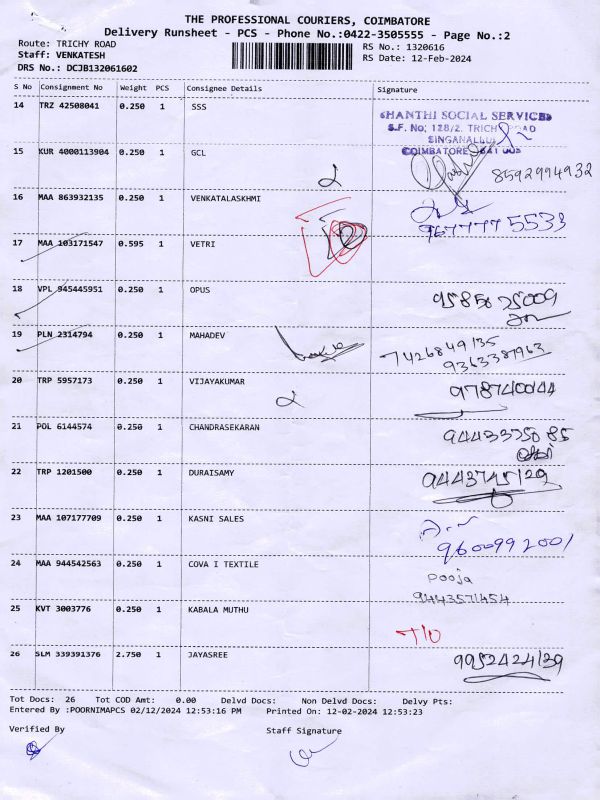 THE PROFESSIONAL COURIERS, COIMBATORE
Delivery Runsheet - PCS - Phone No.:0422-3505555 - Page No.:2
Route: TRICHY ROAD
RS No.: 1320616
Staff: VENKATESH
RS Date: 12-Feb-2024
DRS No.: DCJB132061602
S No Consignment No Weight PCS Consignee Details Signature
14 TRZ 42508041 0.250 1 SSS
SHANTHI SOCIAL SERVICES
S.F. No; 128/2. TRICHY ROAD
SINGANALLUR
COIMBATORE - 641 005
15 KUR 4000113904 0.250 1 GCL
8592994932
16 MAA 863932135 0.250 1 VENKATALASKHMI
967777 5533
17 MAA 103171547 0.595 1 VETRI
18 VPL 945445951 0.250 1 OPUS
9585675009
19 PLN 2314794 0.250 1 MAHADEV
7426849135
9363387963
20 TRP 5957173 0.250 1 VIJAYAKUMAR
21 POL 6144574 0.250 1 CHANDRASEKARAN
22 TRP 1201500 0.250 1 DURAISAMY
9443745129
23 MAA 107177709 0.250 1 KASNI SALES
9600992001
24 MAA 944542563 0.250 1 COVA I TEXTILE
Pooja
9443571454
25 KVT 3003776 0.250 1 KABALA MUTHU
T/O
26 SLM 339391376 2.750 1 JAYASREE
9952424129
Tot Docs: 26 Tot COD Amt: 0.00 Delvd Docs: Non Delvd Docs: Delvy Pts:
Entered By :POORNIMAPCS 02/12/2024 12:53:16 PM Printed On: 12-02-2024 12:53:23
Verified By Staff Signature